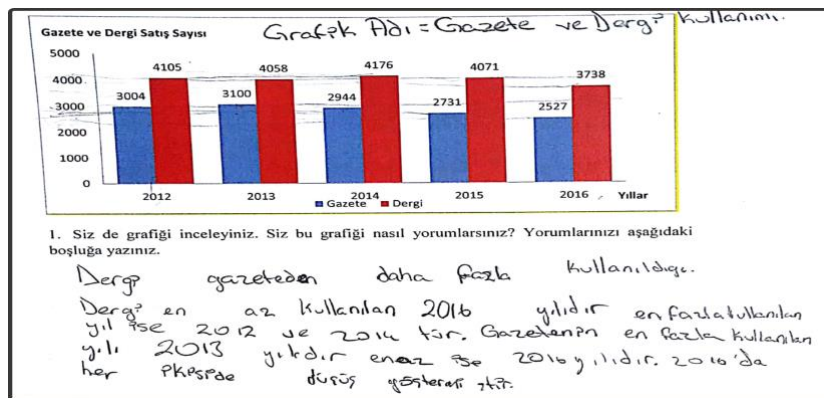 Grafik Adı = Gazete ve Dergi kullanımı.
Gazete ve Dergi Satış Sayısı
5000
4000
3000
2000
1000
0
3004 4105 3100 4058 2944 4176 2731 4071 2527 3738
2012 2013 2014 2015 2016 Yıllar
Gazete Dergi
1. Siz de grafiği inceleyiniz. Siz bu grafiği nasıl yorumlarsınız? Yorumlarınızı aşağıdaki
boşluğa yazınız.
Dergi gazeteden daha fazla kullanıldığı.
Dergi en az kullanılan 2016 yılıdır en fazla kullanılan
yıl ise 2012 ve 2014 tür. Gazetenin en fazla kullanılan
yılı 2013 yılıdır en az ise 2016 yılıdır. 2016'da
her ikiside düşüş